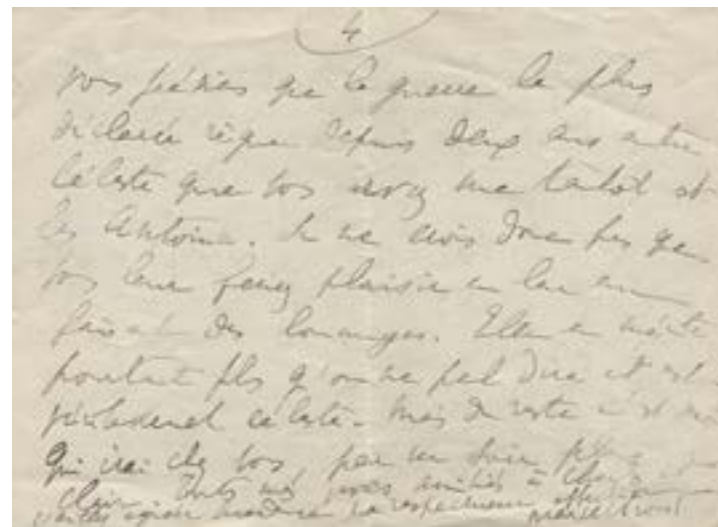 4
que la guerre la plus
déclarée règne depuis deux ans entre
Céleste que vous avez vue tantôt et
les Antoine. Je ne crois donc pas que
vous leur feriez plaisir en leur en
faisant des louanges. Elle en mérite
pourtant plus qu'on ne peut dire et est
Céleste. Mais du reste c'est moi
qui irai chez vous, par un soir plus
amitiés à
Madame respectueux
Marcel Proust